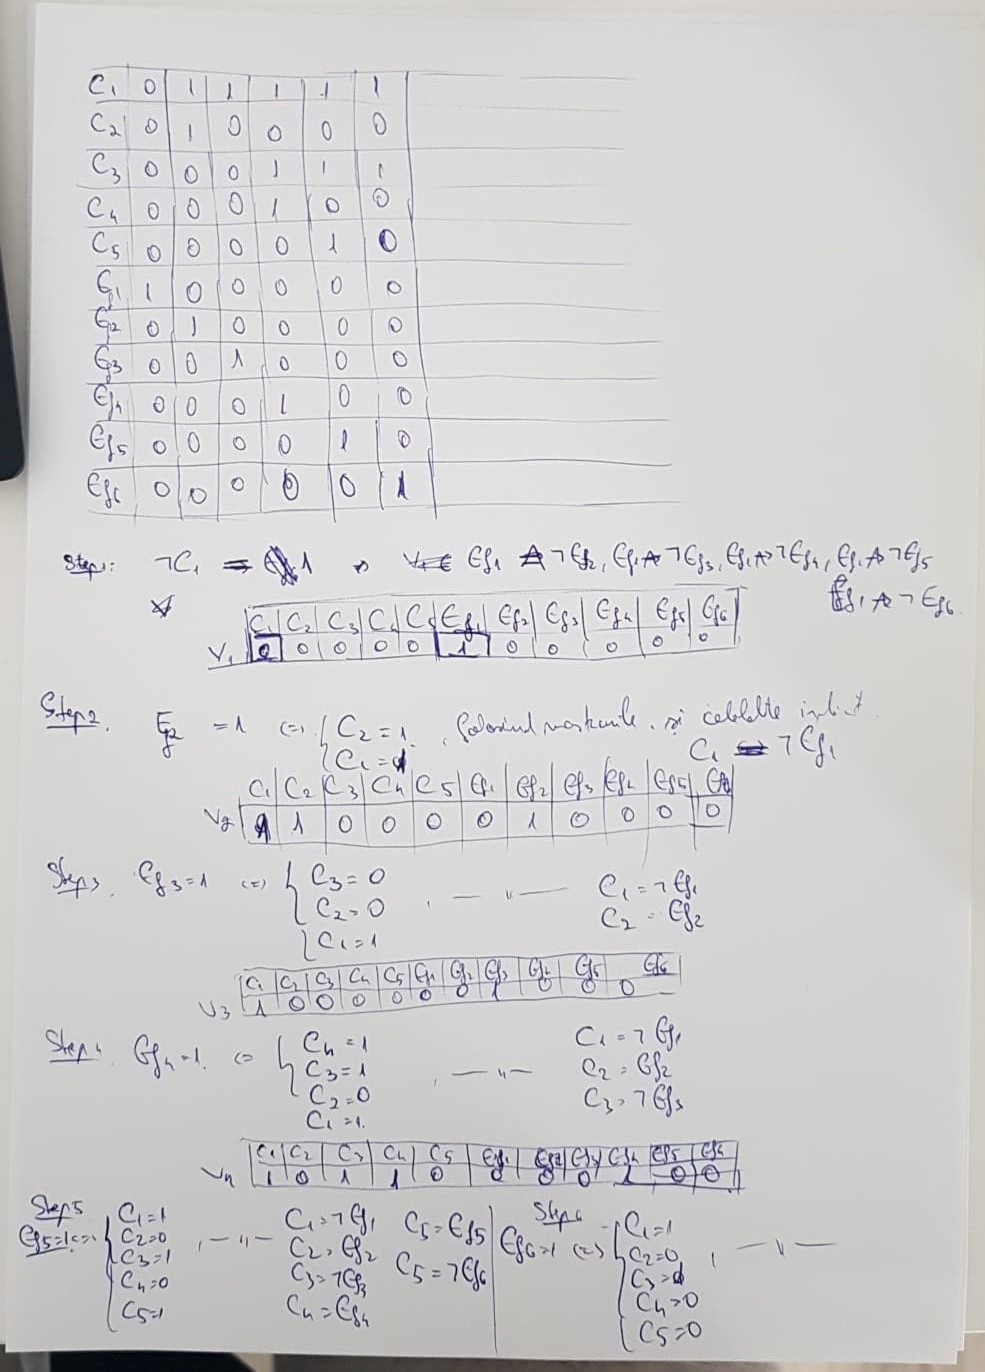 C1 0 1 1 1 1 1
C2 0 1 0 0 0 0
C3 0 0 0 1 1 1
C4 0 0 0 1 0 0
C5 0 0 0 0 1 0
Ef1 1 0 0 0 0 0
Ef2 0 1 0 0 0 0
Ef3 0 0 1 0 0 0
Ef4 0 0 0 1 0 0
Ef5 0 0 0 0 1 0
Ef6 0 0 0 0 0 1
Step1: ¬C1 = 1 => Ef1 ∧ ¬Ef2, Ef1 ∧ ¬Ef3, Ef1 ∧ ¬Ef4, Ef1 ∧ ¬Ef5
Ef1 ∧ ¬Ef6
C1 C2 C3 C4 C5 Ef1 Ef2 Ef3 Ef4 Ef5 Ef6
V1 0 0 0 0 0 1 0 0 0 0 0
Step2. Ef2 = 1 (=) { C2 = 1, folosind și celelalte
C1 = 1 C1 = ¬Ef1
C1 C2 C3 C4 C5 Ef1 Ef2 Ef3 Ef4 Ef5 Ef6
V2 1 1 0 0 0 0 1 0 0 0 0
Step3. Ef3=1 (=) { C3=0
C2=0 , —"— C1 = ¬Ef1
C1=1 C2 = Ef2
C1 C2 C3 C4 C5 Ef1 Ef2 Ef3 Ef4 Ef5 Ef6
V3 1 0 0 0 0 0 0 1 0 0 0
Step4. Ef4=1. (=) { C4 = 1 C1 = ¬Ef1
C3 = 1 , —"— C2 = Ef2
C2=0 C3 = ¬Ef3
C1=1.
C1 C2 C3 C4 C5 Ef1 Ef2 Ef3 Ef4 Ef5 Ef6
V4 1 0 1 1 0 0 0 0 1 0 0
Step5
Ef5=1 (=) { C1=1
C2=0 , —"—
C3=1
C4=0
C5=1
C1=¬Ef1 C5=Ef5
C2=Ef2 C5=¬Ef6
C3=¬Ef3
C4=Ef4
Step6
Ef6=1 (=) { C1=1
C2=0 , —"—
C3=1
C4=0
C5=0